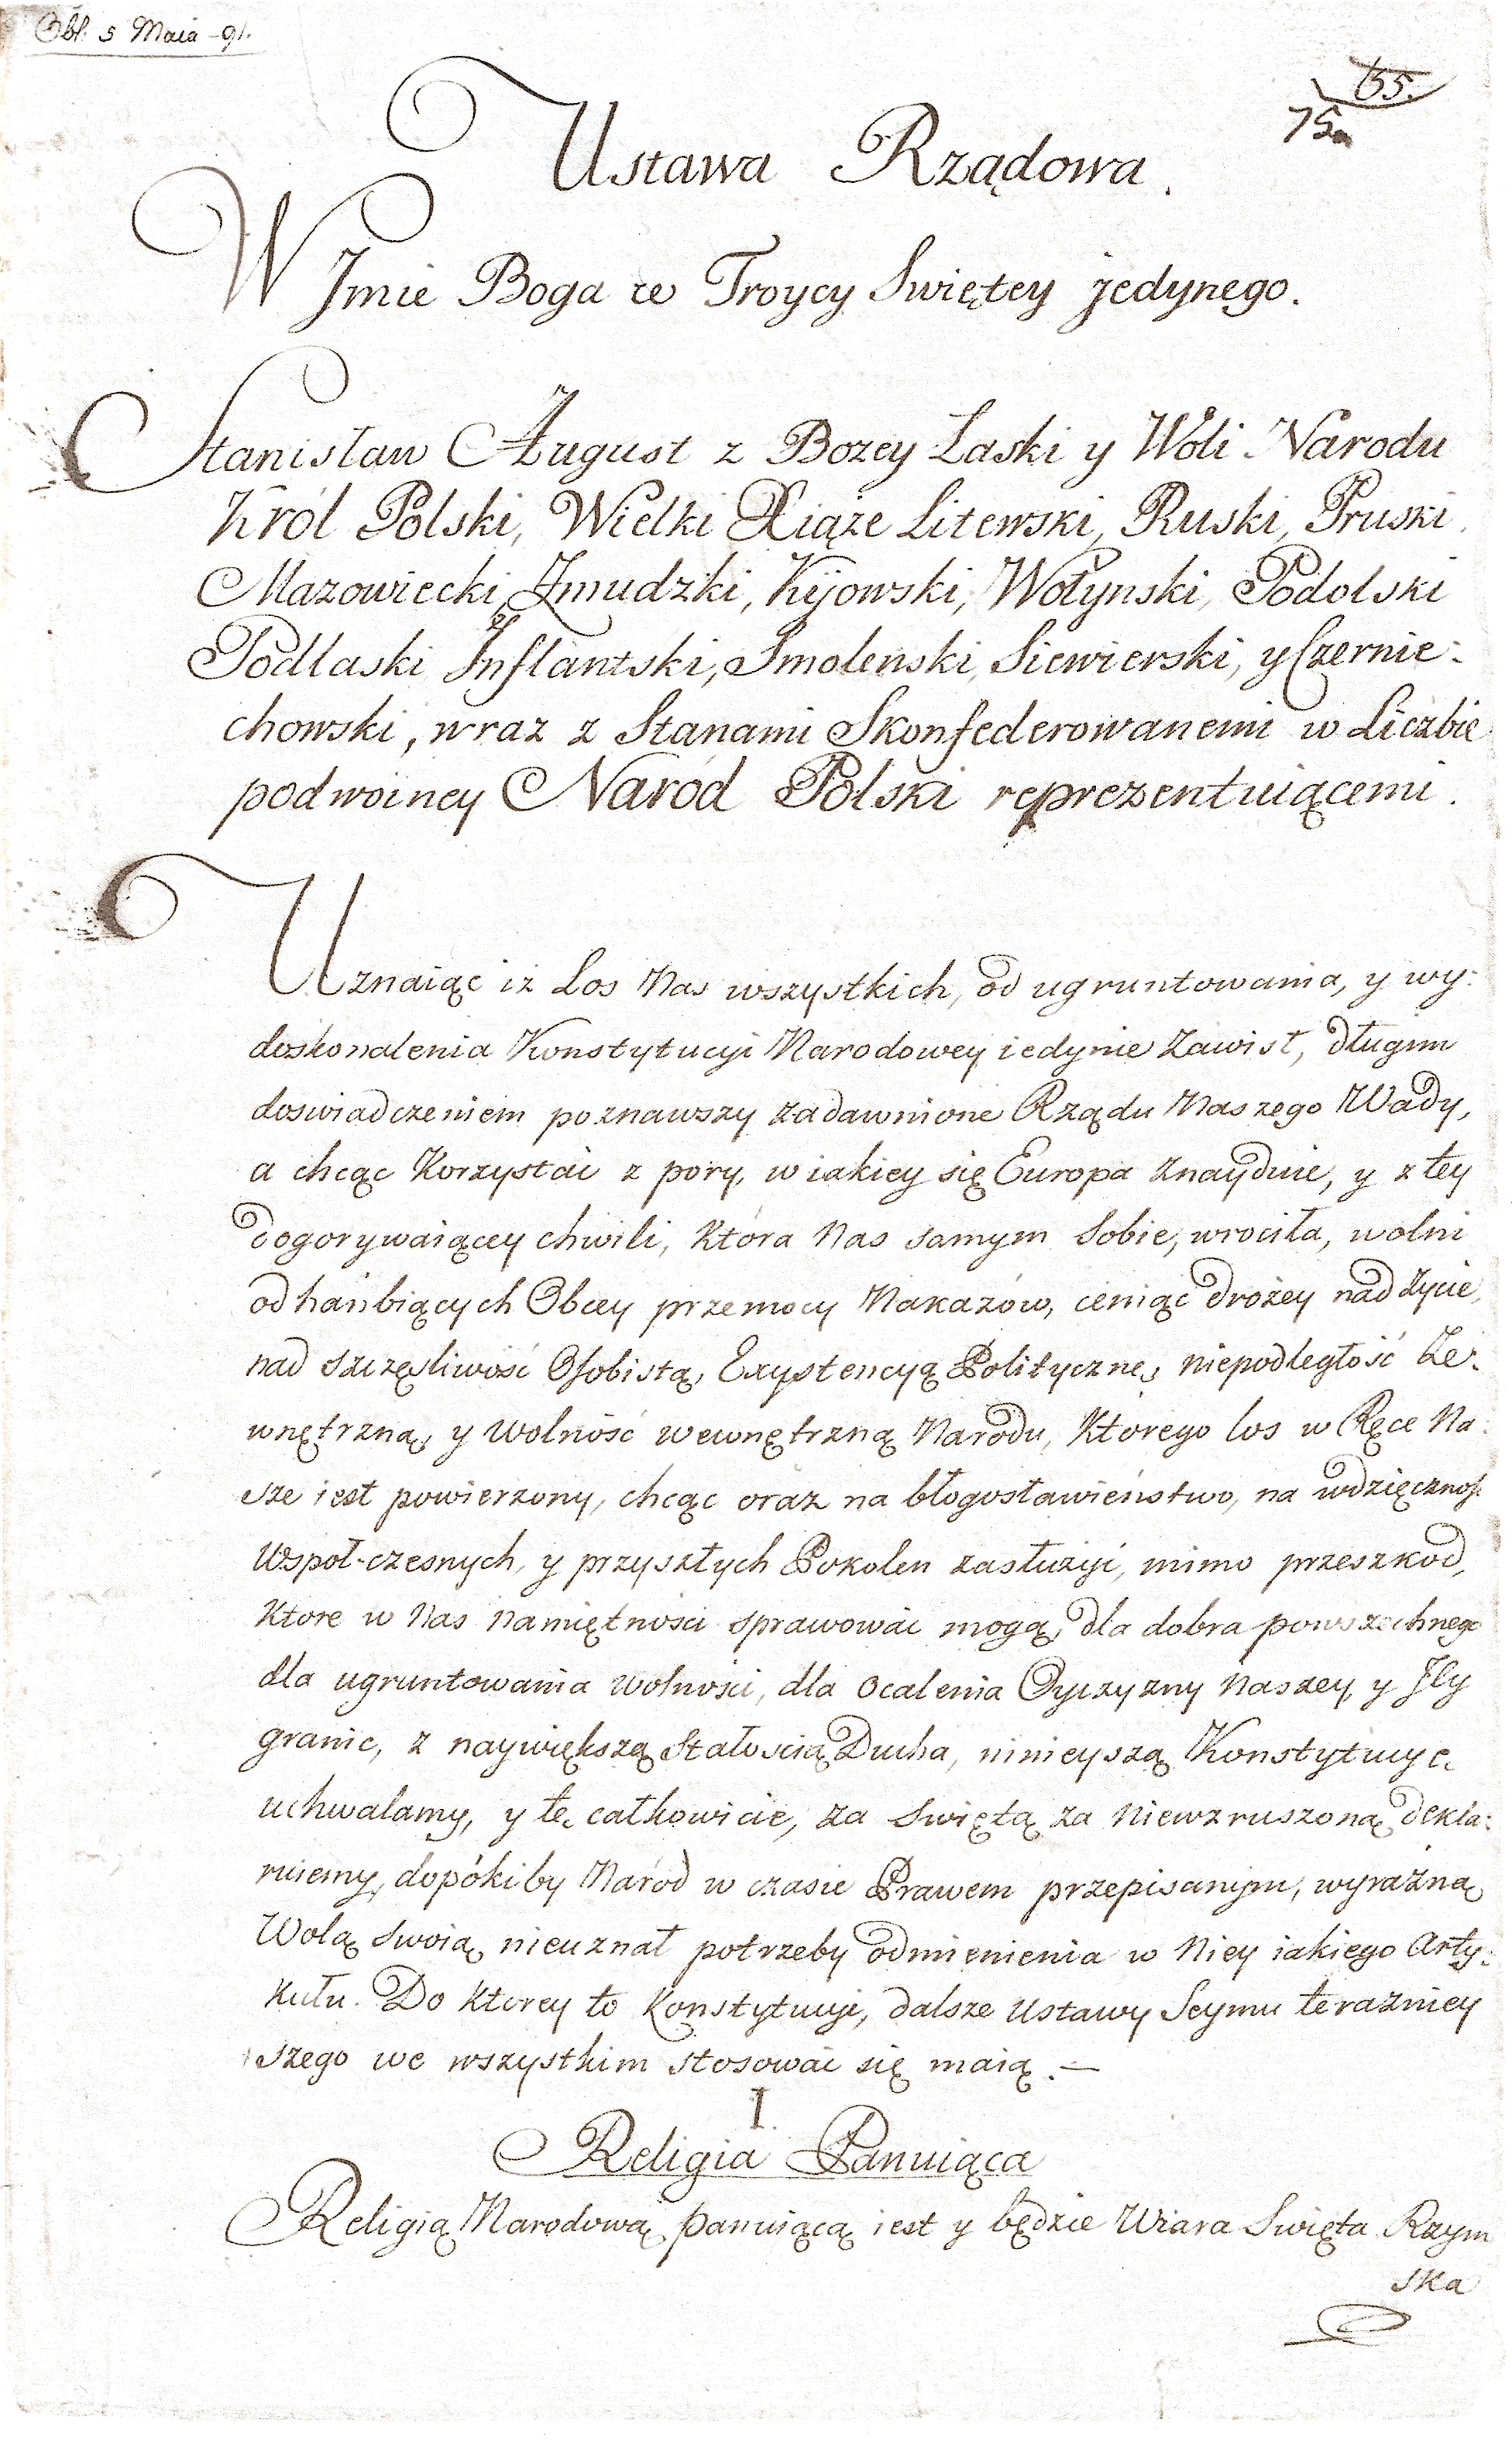 Obl: 5 Maia - 91.
65.
75
Ustawa Rządowa.
W Jmie Boga w Troycy Swiętey jedynego.
Stanisław August z Bozey Łaski y Woli Narodu
Król Polski, Wielki Xiąże Litewski, Ruski, Pruski,
Mazowiecki, Zmudzki, Kijowski, Wołynski, Podolski
Podlaski, Inflantski, Smolenski, Siewierski, y Czernie-
chowski, wraz z Stanami Skonfederowanemi w Liczbie
podwoiney Naród Polski reprezentuiącemi.
Uznaiąc iz Los Nas wszystkich, od ugruntowania, y wy-
doskonalenia Konstytucyi Narodowey iedynie zawisł, długim
doswiadczeniem poznawszy zadawnione Rządu Naszego Wady,
a chcąc korzystać z pory, w iakiey się Europa znayduie, y z tey
dogorywaiącey chwili, która Nas samym sobie, wrociła, wolni
od hańbiących Obcey przemocy Nakazów, ceniąc drożey nad życie,
nad szczęsliwość Osobistą, Exystencyą Polityczną, niepodległość Ze-
wnętrzną, y wolność wewnętrzną Narodu, ktorego los w Ręce Na-
sze iest powierzony, chcąc oraz na błogosławieństwo, na wdzięcznoś:
Wspoł-czesnych, y przyszłych Pokolen zasłużyć, mimo przeszkod,
ktore w Nas namiętnosci sprawować mogą, dla dobra powszechnego
dla ugruntowania wolnosci, dla ocalenia Oyczyzny Naszey, y Jey
granic, z naywiększą Stałoscią Ducha, ninieyszą Konstytucyę
uchwalamy, y tę całkowicie, za swiętą za niewzruszoną dekla-
ruiemy, dopókiby Naród w czasie Prawem przepisanym, wyraźną
Wolą swoią nieuznał potrzeby odmienienia w Niey iakiego Arty-
kułu. Do ktorey to Konstytucyi, dalsze Ustawy Seymu teraźniey
szego we wszystkim stosować się maią. —
I.
Religia Panuiąca
Religią Narodową panuiącą iest y będzie Wiara Swięta Rzym
ska